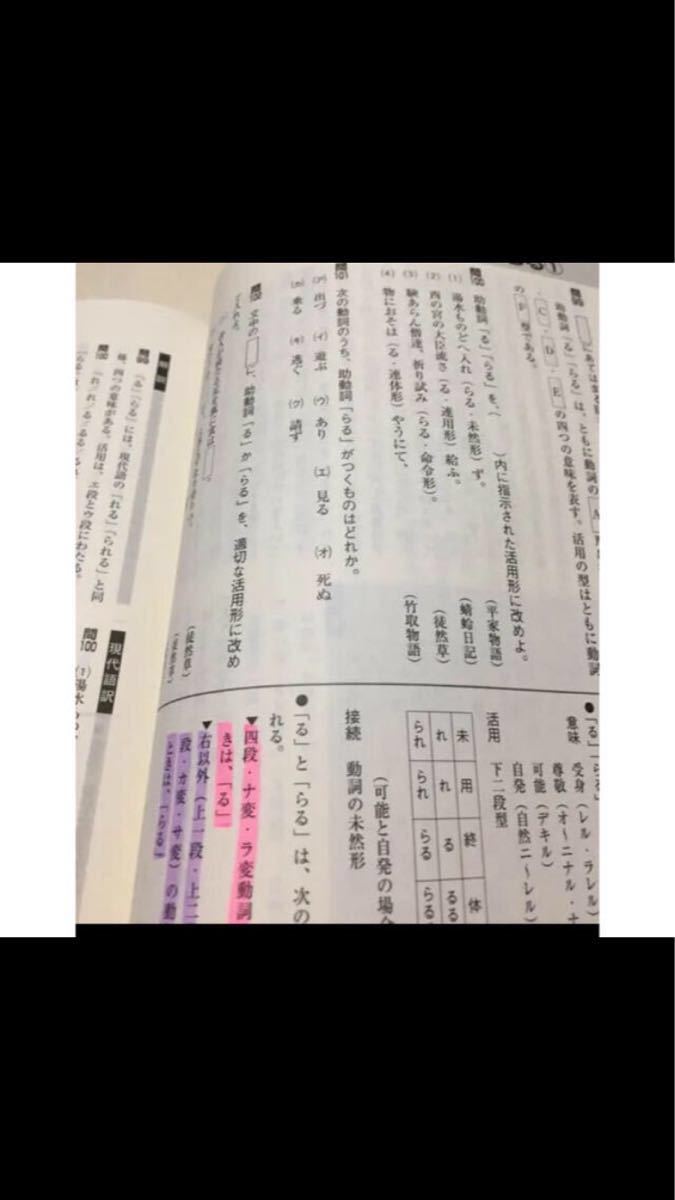 問99
にあてはまる
助動詞「る」「らる」は、ともに動詞の A
・ C ・ D ・ E の四つの意味を表す。活用の型はともに動詞
の F 型である。
問100 助動詞「る」「らる」を、( )内に指示された活用形に改めよ。
(1) 湯水ものどへ入れ(らる・未然形)ず。 (平家物語)
(2) 西の宮の大臣流さ(る・連用形)給ふ。 (蜻蛉日記)
(3) 験あらん僧達、祈り試み(らる・命令形)。 (徒然草)
(4) 物におそは(る・連体形)やうにて、 (竹取物語)
問101 次の動詞のうち、助動詞「らる」がつくものはどれか。
(ア) 出づ (イ) 遊ぶ (ウ) あり (エ) 見る (オ) 死ぬ
(カ) 乗る (キ) 逃ぐ (ク) 請ず
問102 文中の に、助動詞「る」か「らる」を、適切な活用形に改め
て入れよ。
(徒然草)
(徒然草)
●「る」「らる」
意味 受身(レル・ラレル)
尊敬(オ〜ニナル・ナ
可能(デキル)
自発(自然ニ〜レル)
活用 下二段型
未 用 終 体
れ れ る るる
られ られ らる らる
接続 動詞の未然形
(可能と自発の場合
●「る」と「らる」は、次の
れる。
▼四段・ナ変・ラ変動詞
きは、「る」
▼右以外(上一段・上二
段・カ変・サ変)の動
ときは、「らる」
問99 「る」「らる」には、現代語の「れる」「られる」と同
様、四つの意味がある。活用は、エ段とウ段にわたる。
問100 「れ/れ/る/るる/る
現代語訳
問100 (1)湯水